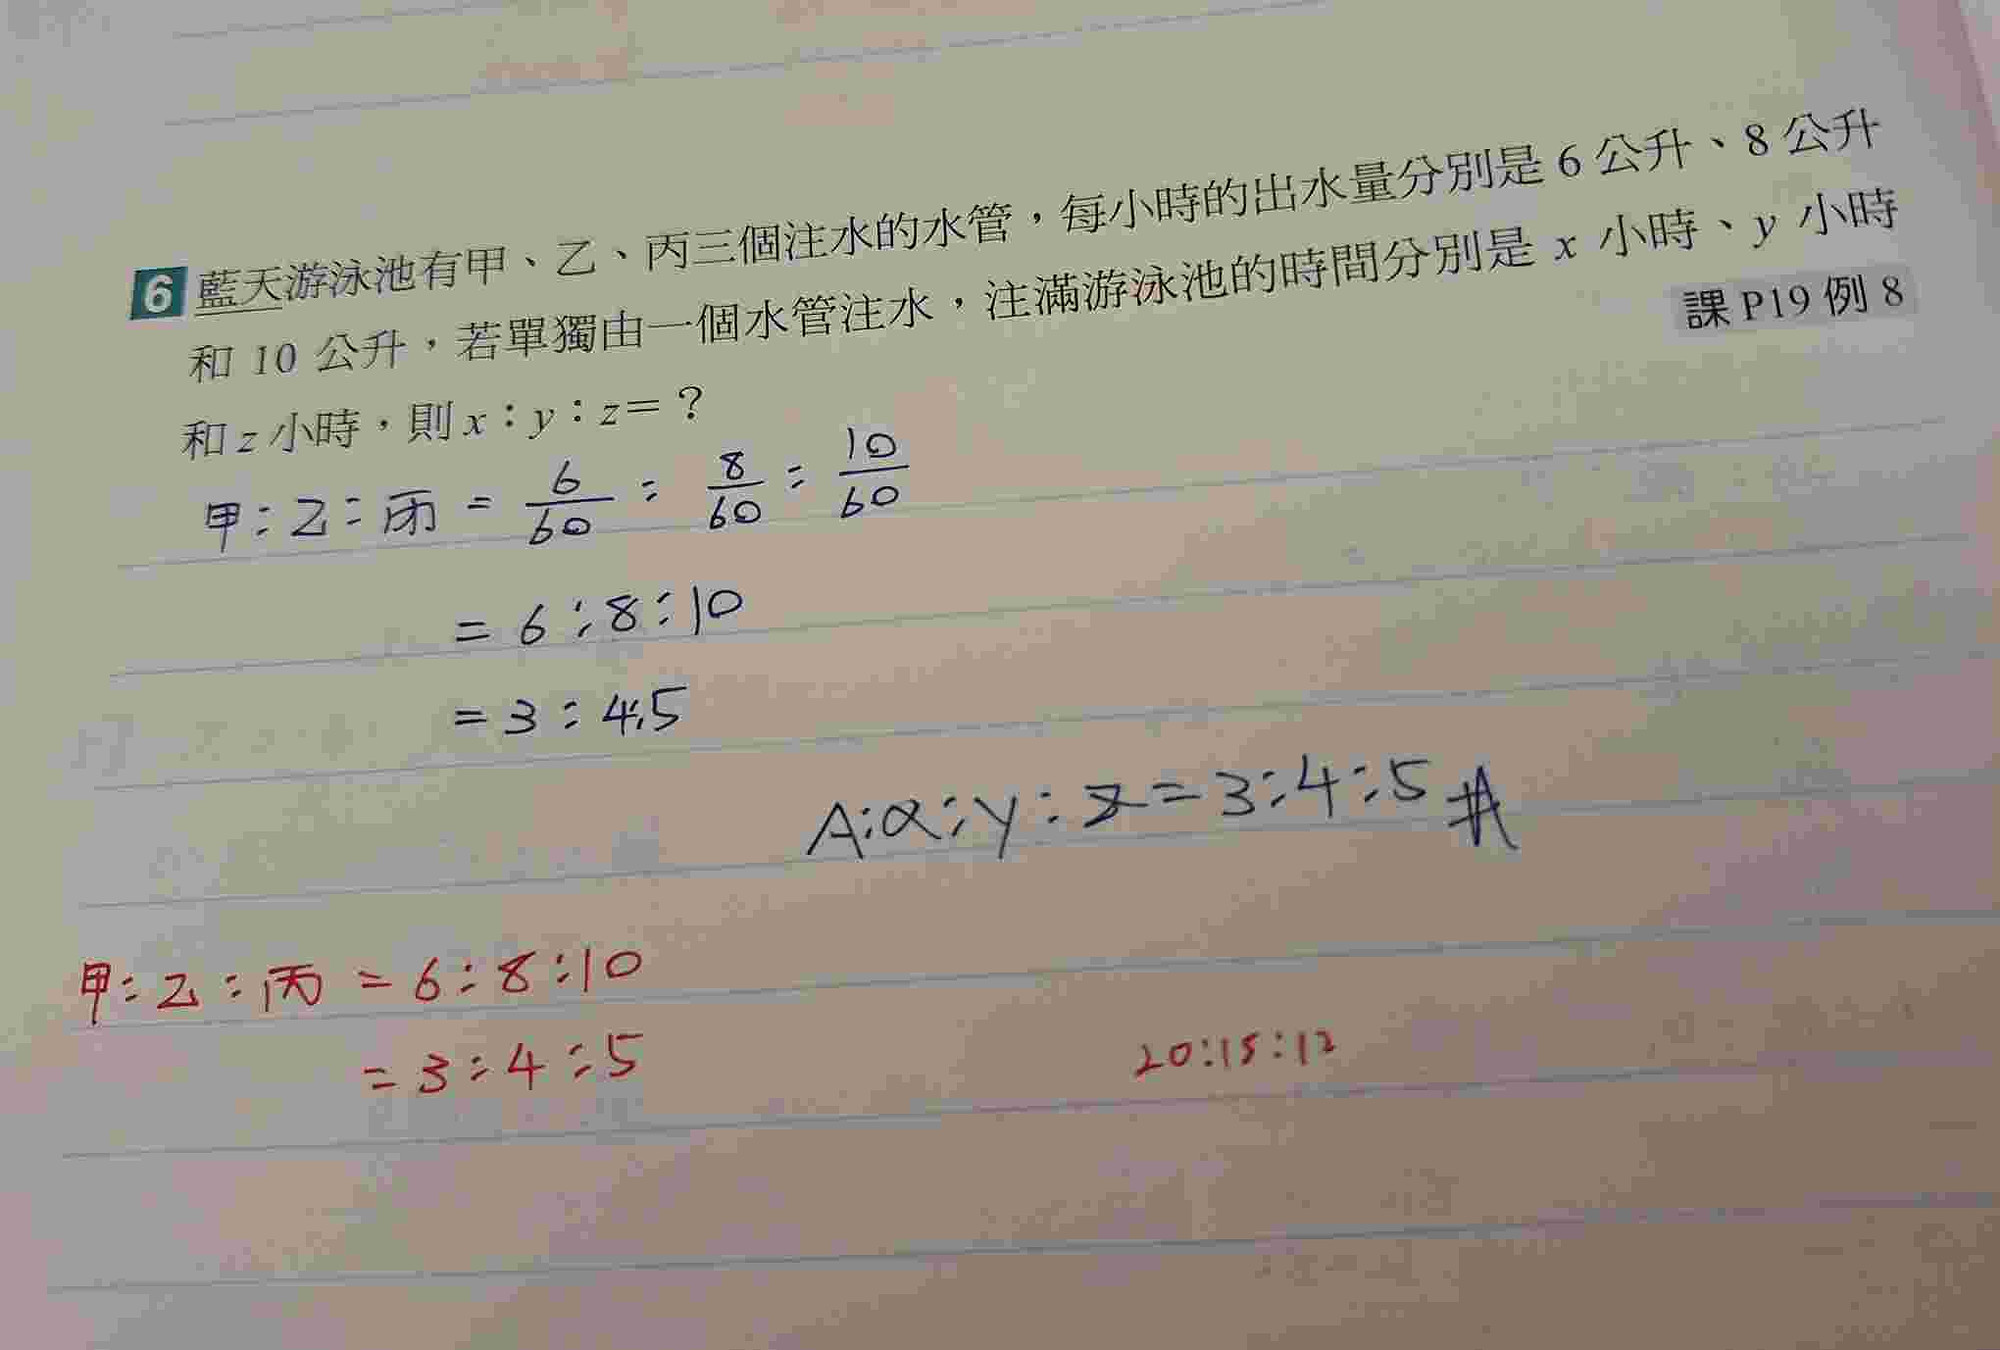 6 藍天游泳池有甲、乙、丙三個注水的水管,每小時的出水量分別是 6 公升、8 公升
和 10 公升,若單獨由一個水管注水,注滿游泳池的時間分別是 x 小時、y 小時
和 z 小時,則 x:y:z=?
課 P19 例 8
甲:乙:丙 = 6/60 : 8/60 : 10/60
= 6:8:10
= 3:4:5
A:x:y:z=3:4:5 #
甲:乙:丙 = 6:8:10
= 3:4:5
20:15:12